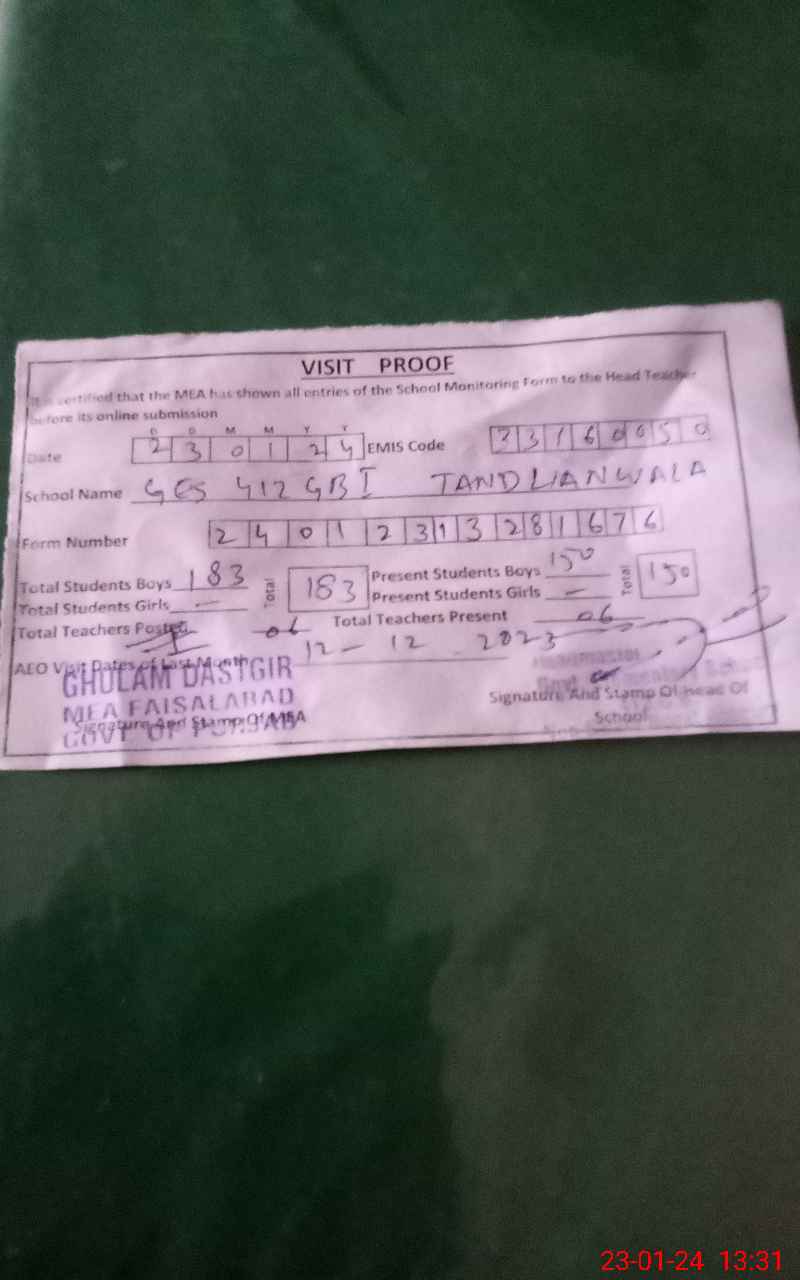 VISIT PROOF
It is certified that the MEA has shown all entries of the School Monitoring Form to the Head Teacher
before its online submission
D D M M Y Y
Date 2 3 0 1 2 4 EMIS Code 3 3 1 6 0 0 5 0
School Name GES 412 GB I TANDLIANWALA
Form Number 2 4 0 1 2 3 1 3 2 8 1 6 7 6
Total Students Boys 183 Total 183 Present Students Boys 150 Total 150
Total Students Girls — Present Students Girls —
Total Teachers Posted 06 Total Teachers Present 06
AEO Visit Dates of Last Month 12 - 12 2023
GHULAM DASTGIR
MEA FAISALABAD
GOVT OF PUNJAB
Signature And Stamp Of MEA
Headmaster
Signature And Stamp Of Head Of
School
23-01-24 13:31